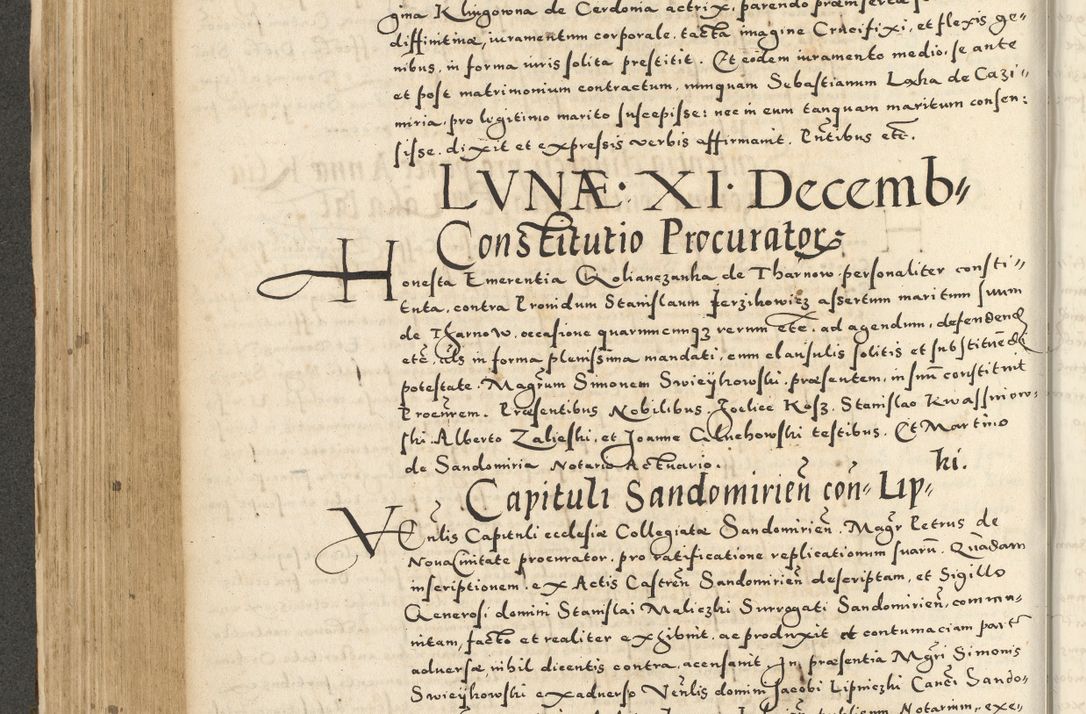 gina Klingowna de Cerdonia actrix, parendo præinsertæ
diffinitinæ, iuramentum corporale, tacta imagine Crucifixi, et flexis ge„
nibus, in forma iuris solita prestitit. Et eodem iuramento medio, se ante
et post matrimonium contractum, nunquam Sebastianum Lxha de Cazi„
miria, pro legitimo marito suscepisse: nec in eum tanquam maritum consen:
sisse. dixit et expressis verbis affirmauit. Pñtibus etc̃.
LVNÆ· XI· Decemb„
Constitutio Procurator:
Honesta Emerentia Kolianczanka de Tharnow personaliter consti„
tuta, contra Prouidum Stanislaum Jerzikowicz assertum maritum suum
de Tharnow, occasione quarumcunqꝫ rerum etc̃. ad agendum, defendend
etc̃. in forma plenissima mandati, cum clausulis solitis et substituendi
potestate. Magrũm Simonem Swieykowski præsentem, in suũ constituit
Procũrem. Præsentibus Nobilibus. Foelice Kosz. Stanislao Kwassniow„
ski Alberto Zalieski, et Joanne Caluchowski testibus. Et Martino
de Sandomiria Notario Actuario.
Capituli Sandomirieñ con„ Lip„ ki.
VEnĩlis Capituli ecclesiæ Collegiatæ Sandomirieñ. Magr̃ Petrus de
Noua Ciuitate procurator, pro ratificatione replicationum suarũ. Quadam
inscriptionem, ex Actis Castreñ Sandomirieñ descriptam, et Sigillo
Generosi domini Stanislai Maliczki Surrogati Sandomirieñ, commu„
nitam, facto et realiter exhibuit, ac produxit et contumaciam part̃
aduersæ, nihil dicentis contra, accusauit. In præsentia Mgr̃i Simonis
Swieykowski ex aduerso Veñlis domini Jacobi Lipniczki Canci Sando„
Notarium, exe„